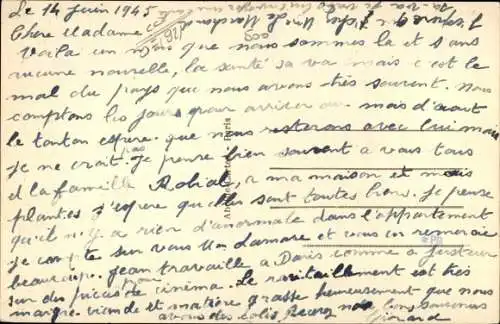 Le 14 juin 1945
Chère Madame
Voila un mois que nous sommes la et sans
aucune nouvelle, la santé sa va mais c'est le
mal du pays que nous avons très souvent. Nous
comptons les jours pour arriver au mois d'aout
le tonton espere que nous resterons avec lui mais
je ne crait pas. Je pense bien souvent a vous tous
et la famille Robial, a ma maison et mes
plantes j'espere quelles sont toutes bien. je pense
qu'il n'y a rien d'anormale dans l'appartement
je compte sur vous Madame et vous en remercie
beaucoup. Jean travaille a Paris comme
sur des pieces de cinema. Le ravitaillement est très
maigre viande et matière grasse heureusement que nous
avons des colis. Recevez nos bons souvenirs